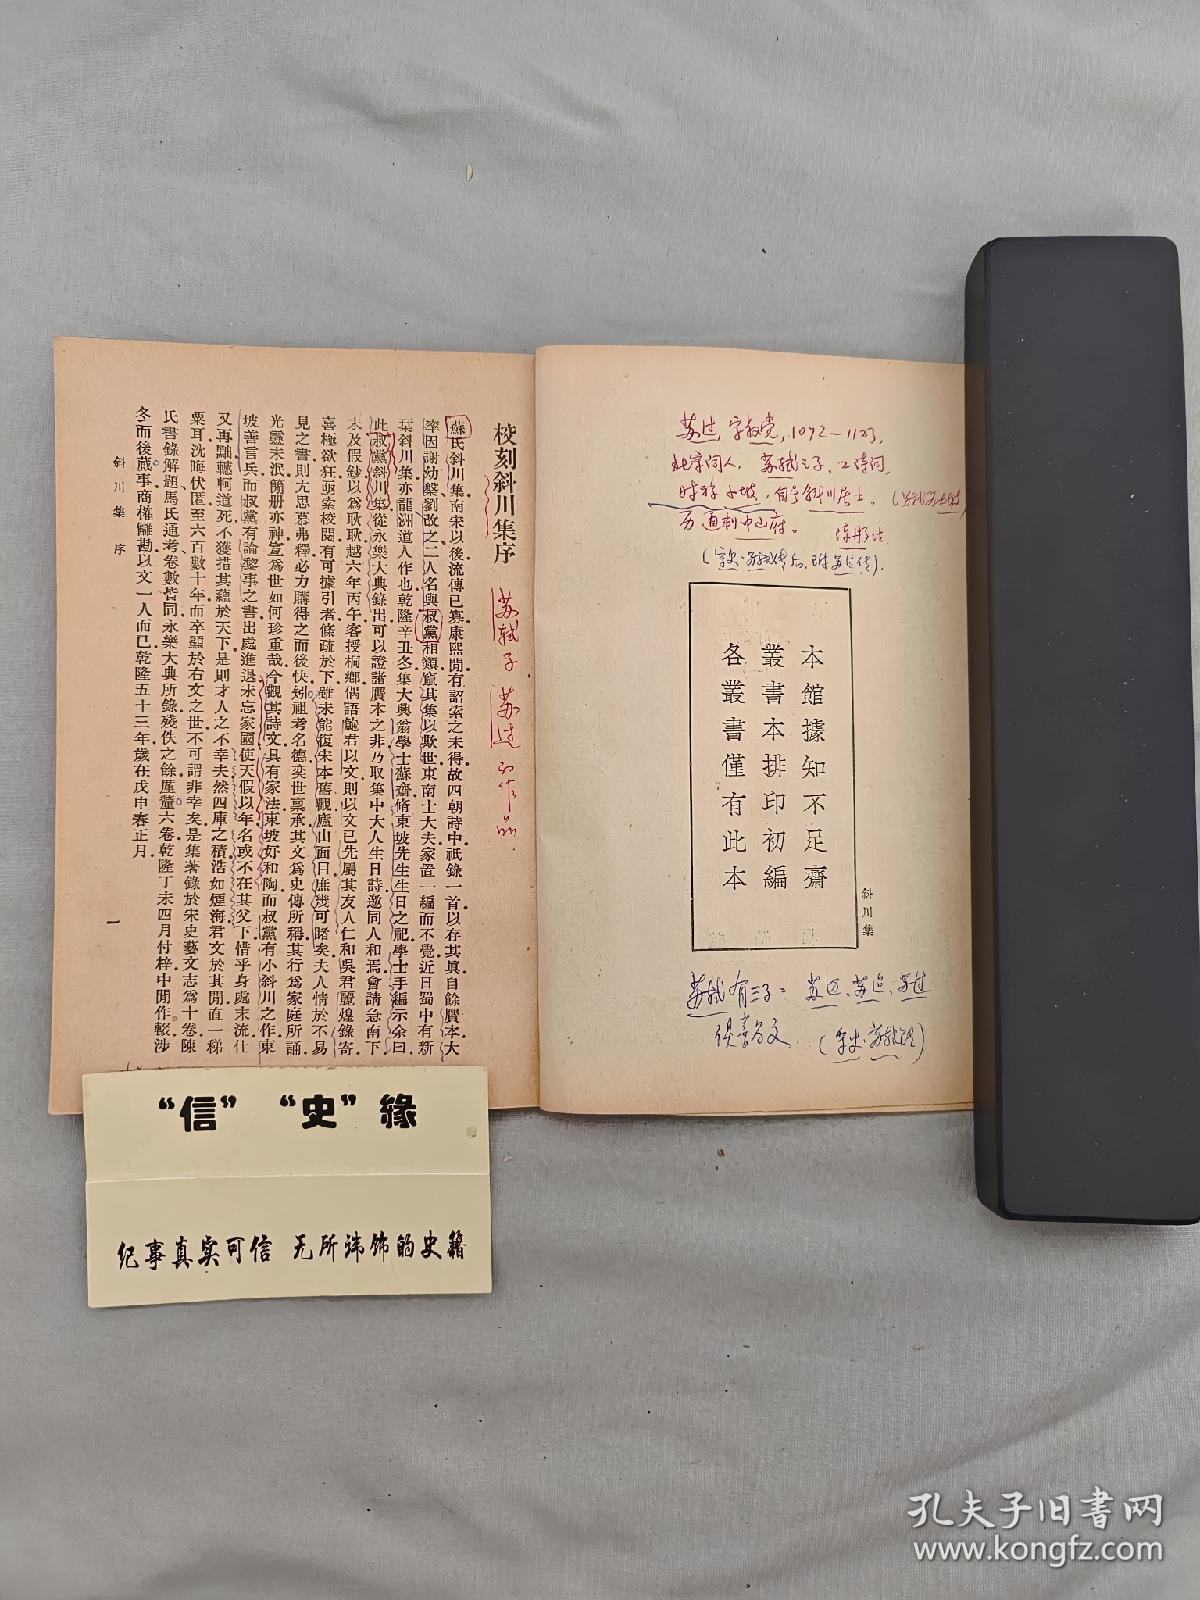 苏过，字叔党，1092—1123，
北宋词人，苏轼之子，工诗词，
时称小坡，自号斜川居士。
历通判中山府。
(宋史·苏轼传后，附苏过传)。
本館據知不足齋
叢書本排印初編
各叢書僅有此本
斜川集
苏轼有三子：苏迈、苏迨、苏过
俱善为文
(宋史·苏轼传)
校刻斜川集序
苏轼子 苏过的作品
蘇氏斜川集南宋以後流傳已寡康熙閒有詔索之未得故四朝詩中祇錄一首以存其眞自餘贗本大
率因謝幼槃劉改之二人名與叔黨相類竄其集以欺世東南士大夫家置一編而不覺近日蜀中有新
葉斜川集亦龍洲道人作也乾隆辛丑冬集大興翁學士蘇齋脩東坡先生生日之祀學士手編示余曰
此叔黨斜川集從永樂大典錄出可以證諸贗本之非乃取集中大人生日詩邀同人和焉會請急南下
未及假鈔以爲耿耿越六年丙午客授桐鄉偶語鮑君以文則以文已先屬其友人仁和吳君麗煌錄寄
喜極欲狂亟索校閱有可據引者條疏於下雖未能復朱本舊觀廬山面目庶幾可睹矣夫人情於不易
見之書則尤思慕弗釋必力購得之而後快矧祖考名德奕世稟承其文爲史傳所稱其行爲家庭所誦
光靈未沬簡册亦神宜爲世如何珍重哉今觀其詩文具有家法東坡好和陶而叔黨有小斜川之作東
坡善言兵而叔黨有論黎事之書出處進退未忘家國使天假以年名或不在其父下惜乎身處末流仕
又再黜轗軻道死不獲措其蘊於天下是則才人之不幸夫然四庫之積浩如煙海君文於其閒直一稊
粟耳沈晦伏匿至六百數十年而卒顯於右文之世不可謂非幸矣是集著錄於宋史藝文志爲十卷陳
氏書錄解題馬氏通考卷數皆同永樂大典所錄殘佚之餘厘釐六卷乾隆丁未四月付梓中閒作輟涉
冬而後蕆事商榷讎勘以文一人而已乾隆五十三年歲在戊申春正月
斜川集 序
一
“信” “史” 緣
纪事真实可信 无所讳饰的史籍
孔夫子旧书网
www.kongfz.com